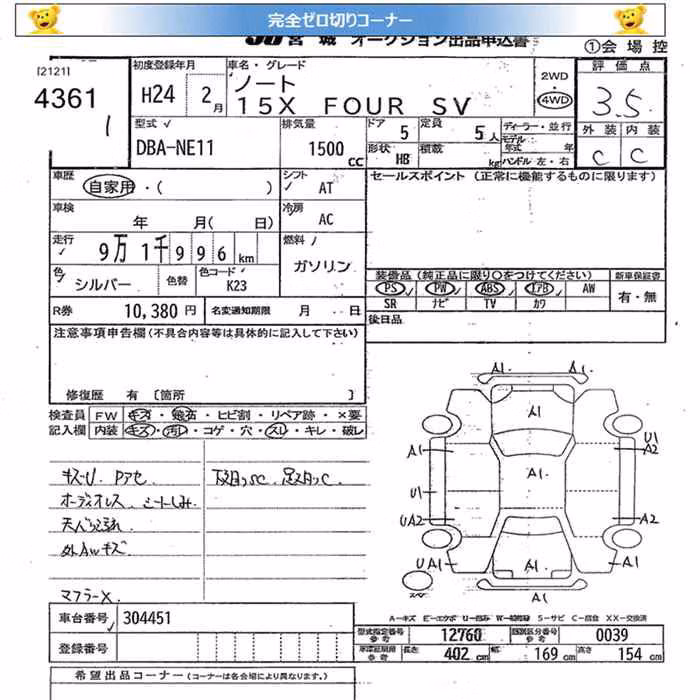 完全ゼロ切りコーナー
JU 宮城 オークション出品申込書
①会場控
[2121]
4361
1
初度登録年月
H24 2月
車名・グレード
ノート
15X FOUR SV
2WD
4WD
評価点
3.5
外装 内装
C C
型式
DBA-NE11
排気量
1500 CC
ドア 5
定員 5人
形状 HB
積載 kg
ディーラー・並行
モデル年式 年
ハンドル 左・右
車歴
自家用・( )
シフト AT
セールスポイント (正常に機能するものに限ります)
車検 年 月( 日)
冷房 AC
走行 9万1千996km
燃料 ガソリン
色 シルバー
色替
色コード K23
装備品 (純正品に限り○をつけてください)
新車保証書
PS PW ABS エアB AW
有・無
SR ナビ TV カワ
R券 10,380円
名変通知期限 月 日
後日品
注意事項申告欄(不具合内容等は具体的に記入して下さい)
修復歴 有 [箇所 ]
検査員 FW キズ・飛石・ヒビ割・リペア跡・×要
記入欄 内装 キズ・汚れ・コゲ・穴・スレ・キレ・破レ
キズU. Pアセ
下回りSC. 足回りC.
オーディオレス シートしみ
外AWキズ
マフラーX
A1
A1
A1 A1 U1
A2
U1
UA2 A2
UA1 A1 UA1
A1
A-キズ E-エクボ S-サビ C-腐食 XX-交換済
車台番号 304451
型式指定番号参考 12760
類別区分番号参考 0039
登録番号
参考 長さ 402cm 幅 169cm 高さ 154cm
希望出品コーナー (コーナーは各会場により異なります。)